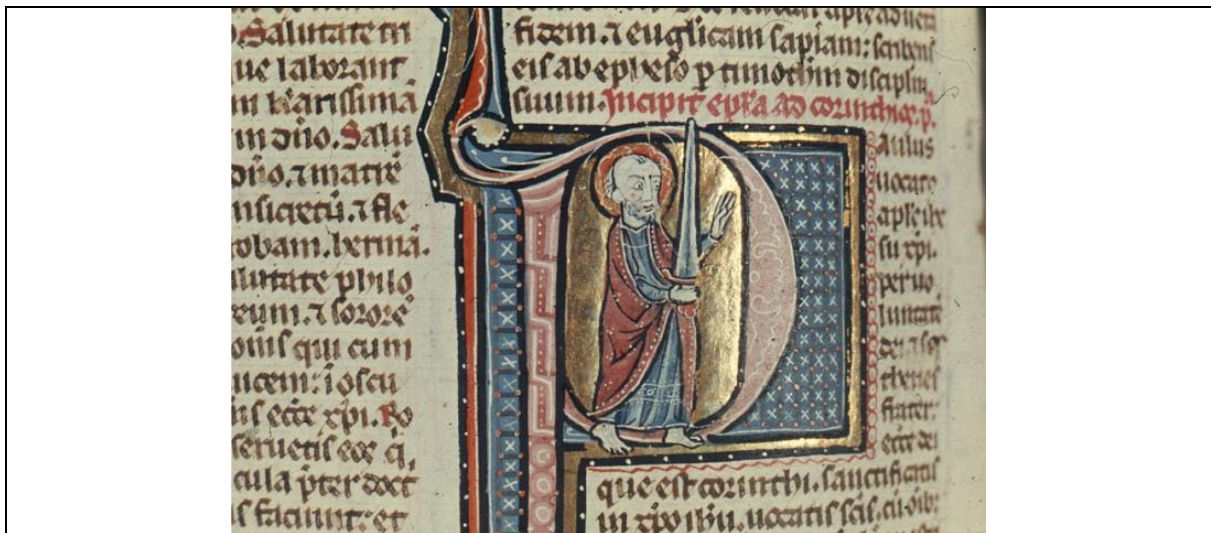 Salutate tri
que laborant
m karissimā
in dn̄o. Salu
dn̄o. ⁊ matrē
nsicretū. ⁊ fle
robam. hermā.
alutate philo
reum. ⁊ sororē
qui cum
ucem: ī oscu
ecc̄e xp̄i. Ro
seruetis eos q̄
cula p̄ter doct
s faciunt: et
fidem. ⁊ euglicam sapiam: scribens
eis ab epheso p timothm discipłm
suum. Incipit epłā ad corinthios. p̄.
Paulus
uocatꝰ
apłs ihe
su xp̄i.
per uo
luntatē
dei. ⁊ sos
thenes
frater:
ecc̄e dei
que est corinthi. sanctificatis
in xp̄o ih̄u. uocatis sc̄is. cū oīb;